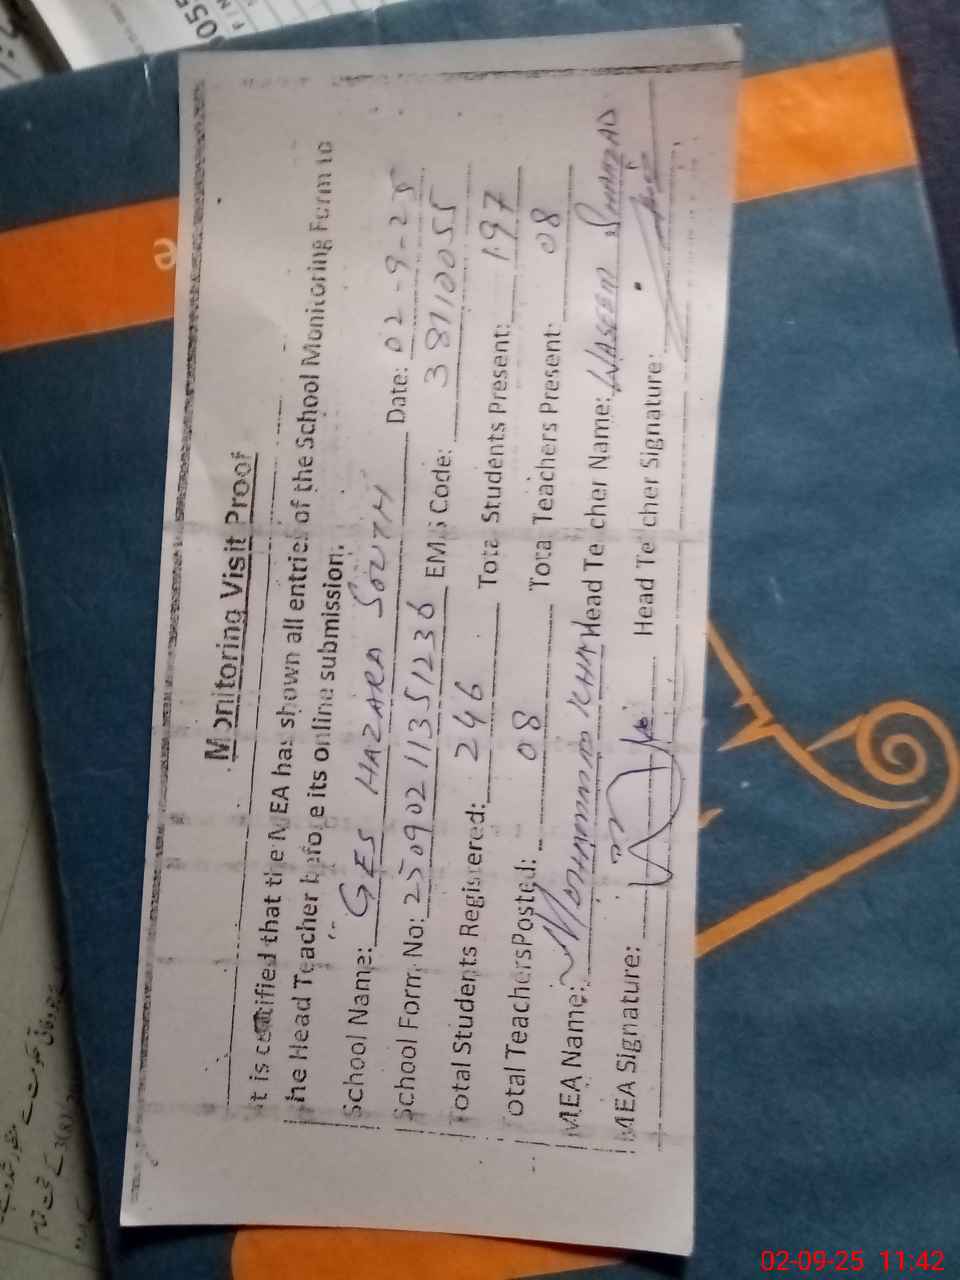 Monitoring Visit Proof
It is certified that the MEA has shown all entries of the School Monitoring Form to
the Head Teacher before its online submission.
School Name: GES HAZARA SOUTH Date: 02-9-25
School Form No: 25090211351236 EMIS Code: 38110055
Total Students Registered: 246 Total Students Present: 197
Total Teachers Posted: 08 Total Teachers Present: 08
MEA Name: MOHAMMAD KHAN Head Teacher Name: WASEEM SHAHZAD
MEA Signature: Head Teacher Signature:
02-09-25 11:42